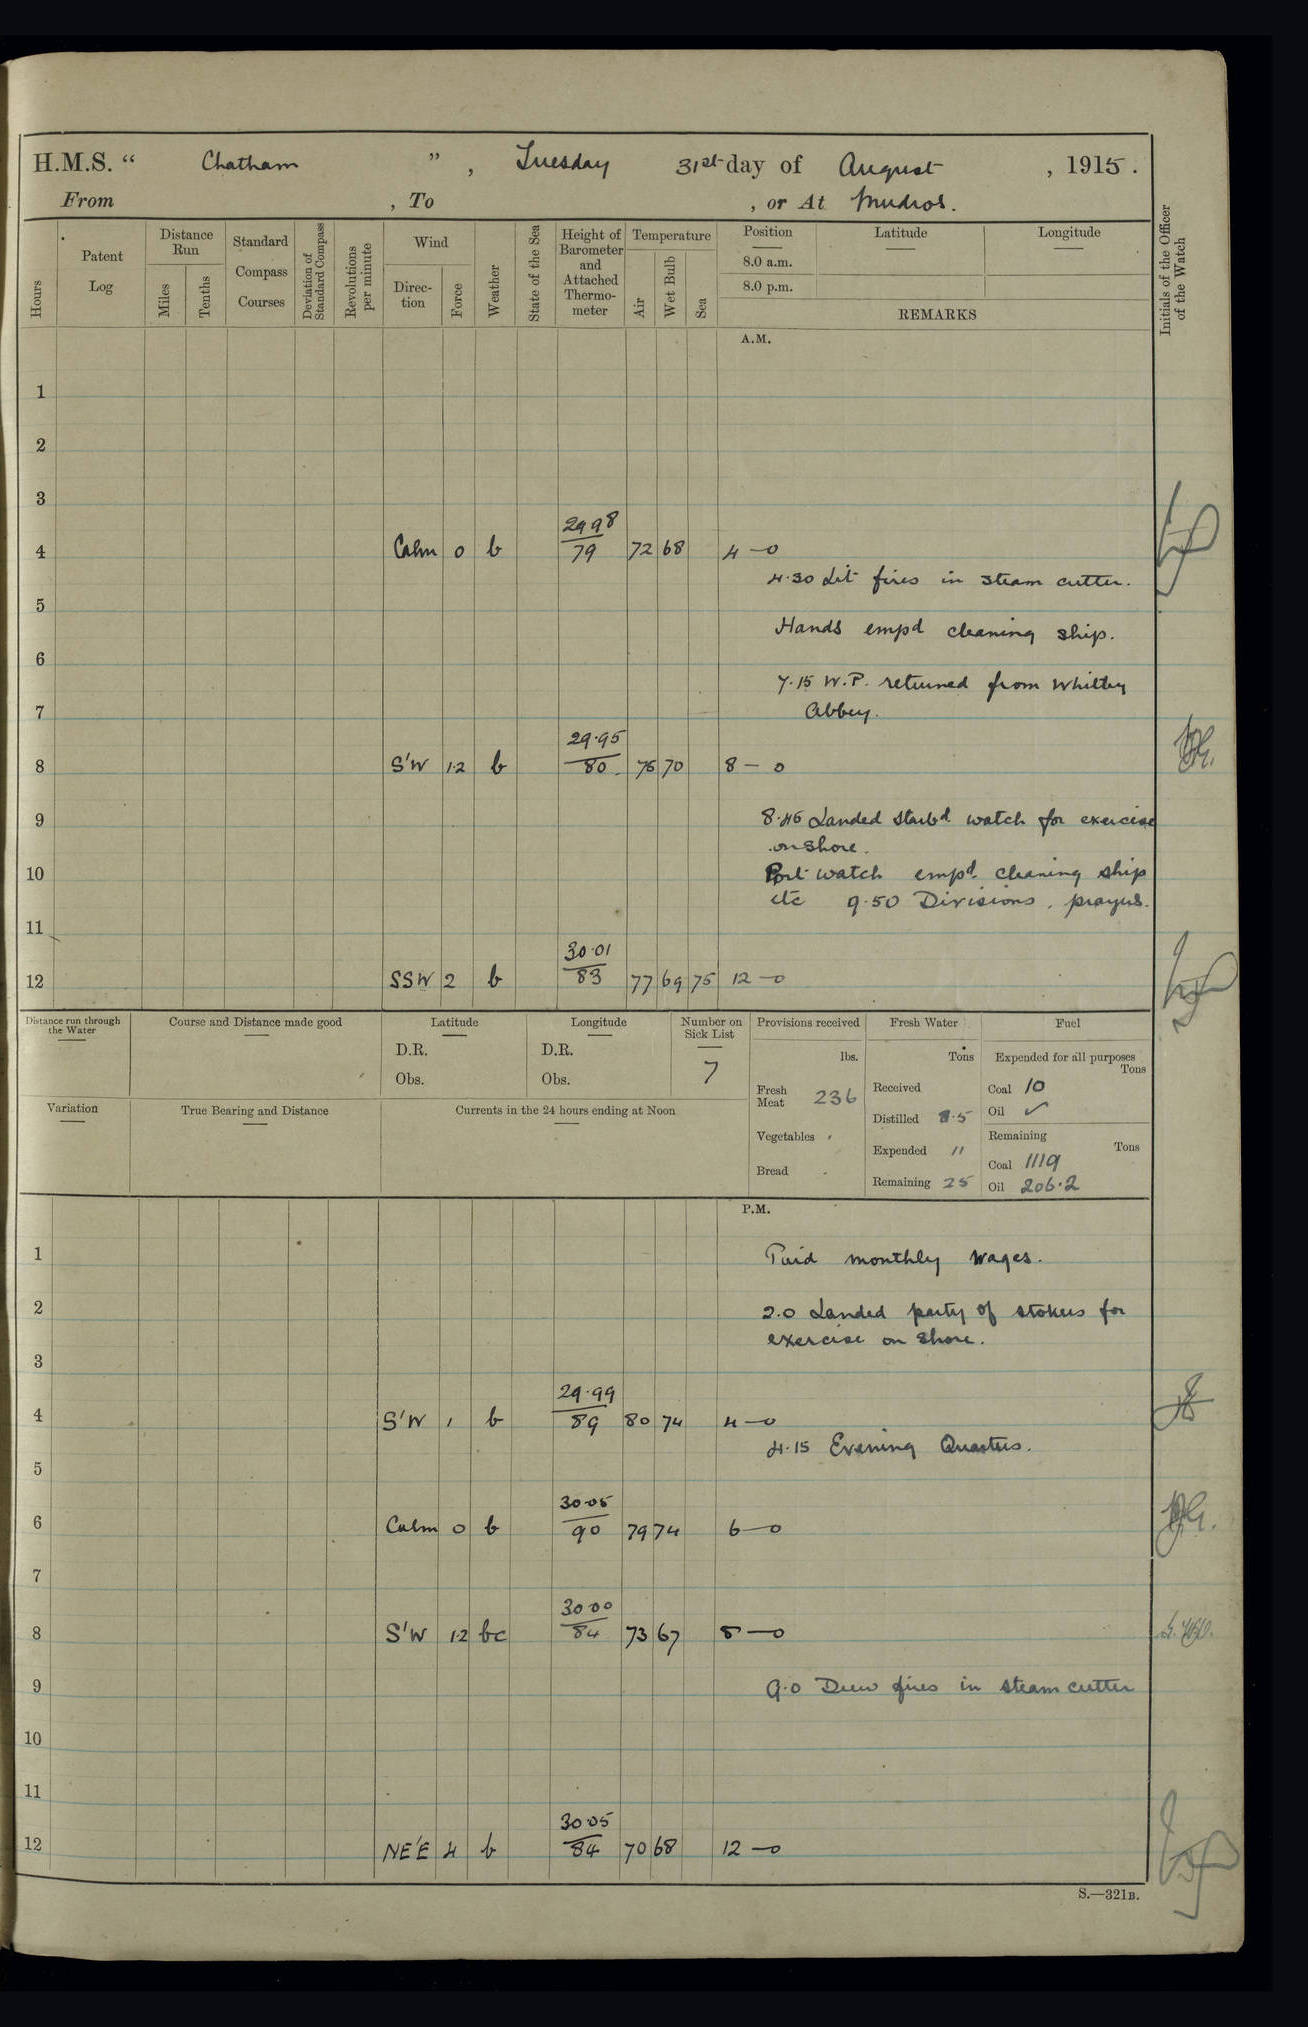 H.M.S. “ Chatham ” , Tuesday 31st day of August , 1915.
From , To , or At Mudros.
Hours
Patent Log
Distance Run
Miles
Tenths
Standard Compass Courses
Deviation of Standard Compass
Revolutions per minute
Wind
Direction
Force
Weather
State of the Sea
Height of Barometer and Attached Thermometer
Temperature
Air
Wet Bulb
Sea
Position
8.0 a.m.
8.0 p.m.
Latitude
Longitude
REMARKS
Initials of the Officer of the Watch
A.M.
1
2
3
29 98
4 Calm 0 b 79 72 68 4 — 0
4.30 Lit fires in steam cutter.
5
Hands empd cleaning ship.
6
7.15 W.P. returned from Whitby
7 Abbey.
29.95
8 S'W 1.2 b 80 76 70 8 — 0
9 8.45 Landed starbd watch for exercise
on shore.
10 Port watch empd. cleaning ship
etc 9.50 Divisions, prayers.
11
30.01
12 SSW 2 b 83 77 69 75 12 — 0
Distance run through the Water
Course and Distance made good
Latitude
D.R.
Obs.
Longitude
D.R.
Obs.
Number on Sick List
7
Variation
True Bearing and Distance
Currents in the 24 hours ending at Noon
Provisions received
lbs.
Fresh Meat 236
Vegetables
Bread
Fresh Water
Tons
Received
Distilled 8.5
Expended 11
Remaining 25
Fuel
Expended for all purposes
Tons
Coal 10
Oil ✓
Remaining
Tons
Coal 1119
Oil 206.2
P.M.
1 Paid monthly wages.
2 2.0 Landed party of stokers for
exercise on shore.
3
29.99
4 S'W 1 b 89 80 74 4 — 0
4.15 Evening Quarters.
5
30.05
6 Calm 0 b 90 79 74 6 — 0
7
30.00
8 S'W 1.2 bc 84 73 67 8 — 0
9 9.0 Drew fires in steam cutter
10
11
30.05
12 NE'E 4 b 84 70 68 12 — 0
S.—321B.